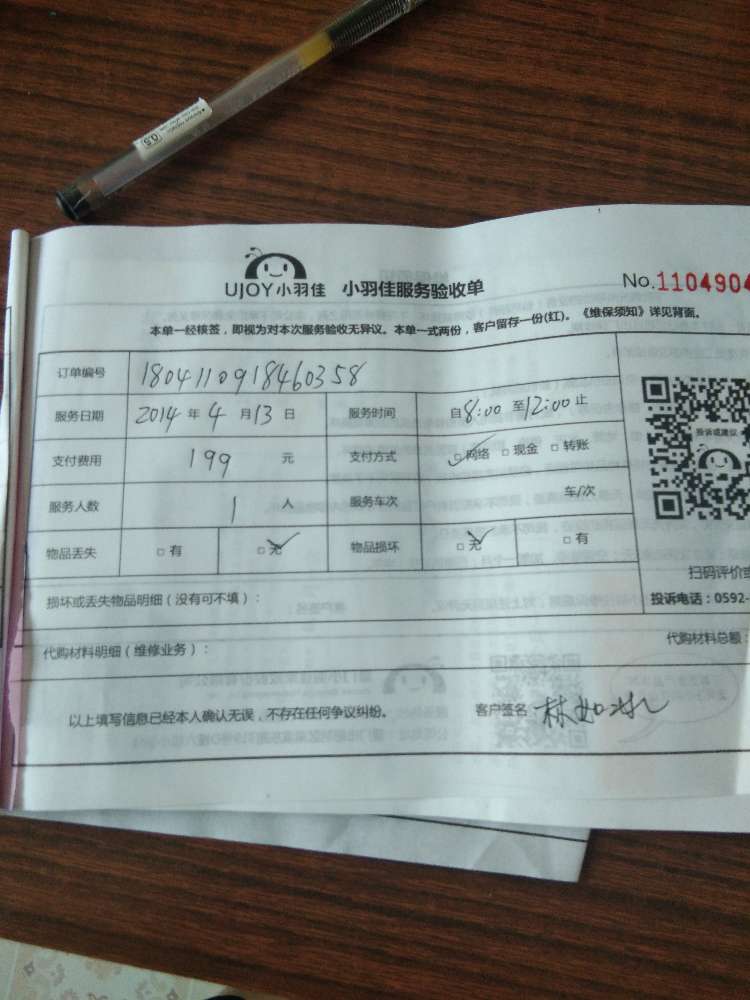 0.5
UJOY小羽佳 小羽佳服务验收单 No.1104904
本单一经核签,即视为对本次服务验收无异议。本单一式两份,客户留存一份(红)。《维保须知》详见背面。
订单编号 1804110918460358
服务日期 2014 年 4 月 13 日 服务时间 自8:00 至12:00止
支付费用 199 元 支付方式 □网络 □现金 □转账
服务人数 1 人 服务车次 车/次
物品丢失 □有 □无 物品损坏 □无 □有
投诉或建议
扫码评价或
损坏或丢失物品明细(没有可不填): 投诉电话:0592-
代购材料明细(维修业务): 代购材料总额:
以上填写信息已经本人确认无误,不存在任何争议纠纷。 客户签名:林如冰